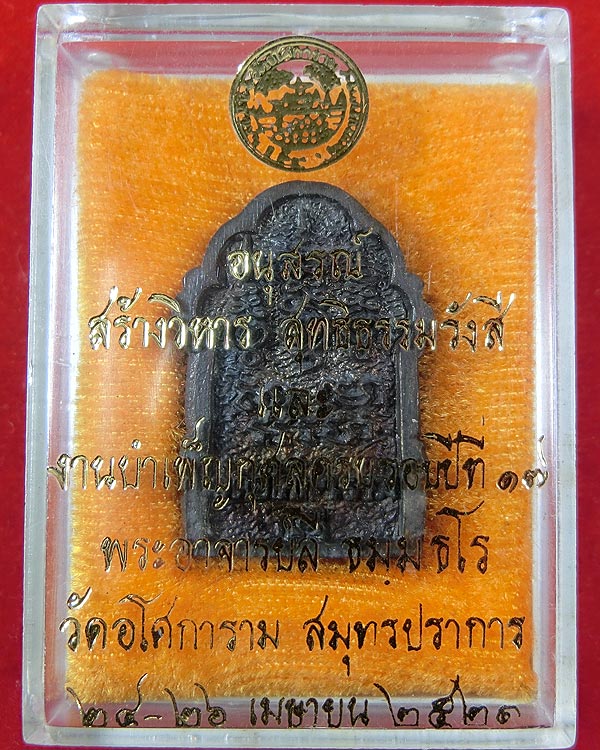 อนุสรณ์
สร้างวิหาร สุทธิธรรมรังสี
และ
งานบำเพ็ญกุศลครบรอบปีที่ ๑๗
พระอาจารย์ลี ธมฺมธโร
วัดอโศการาม สมุทรปราการ
๒๔-๒๖ เมษายน ๒๕๒๑